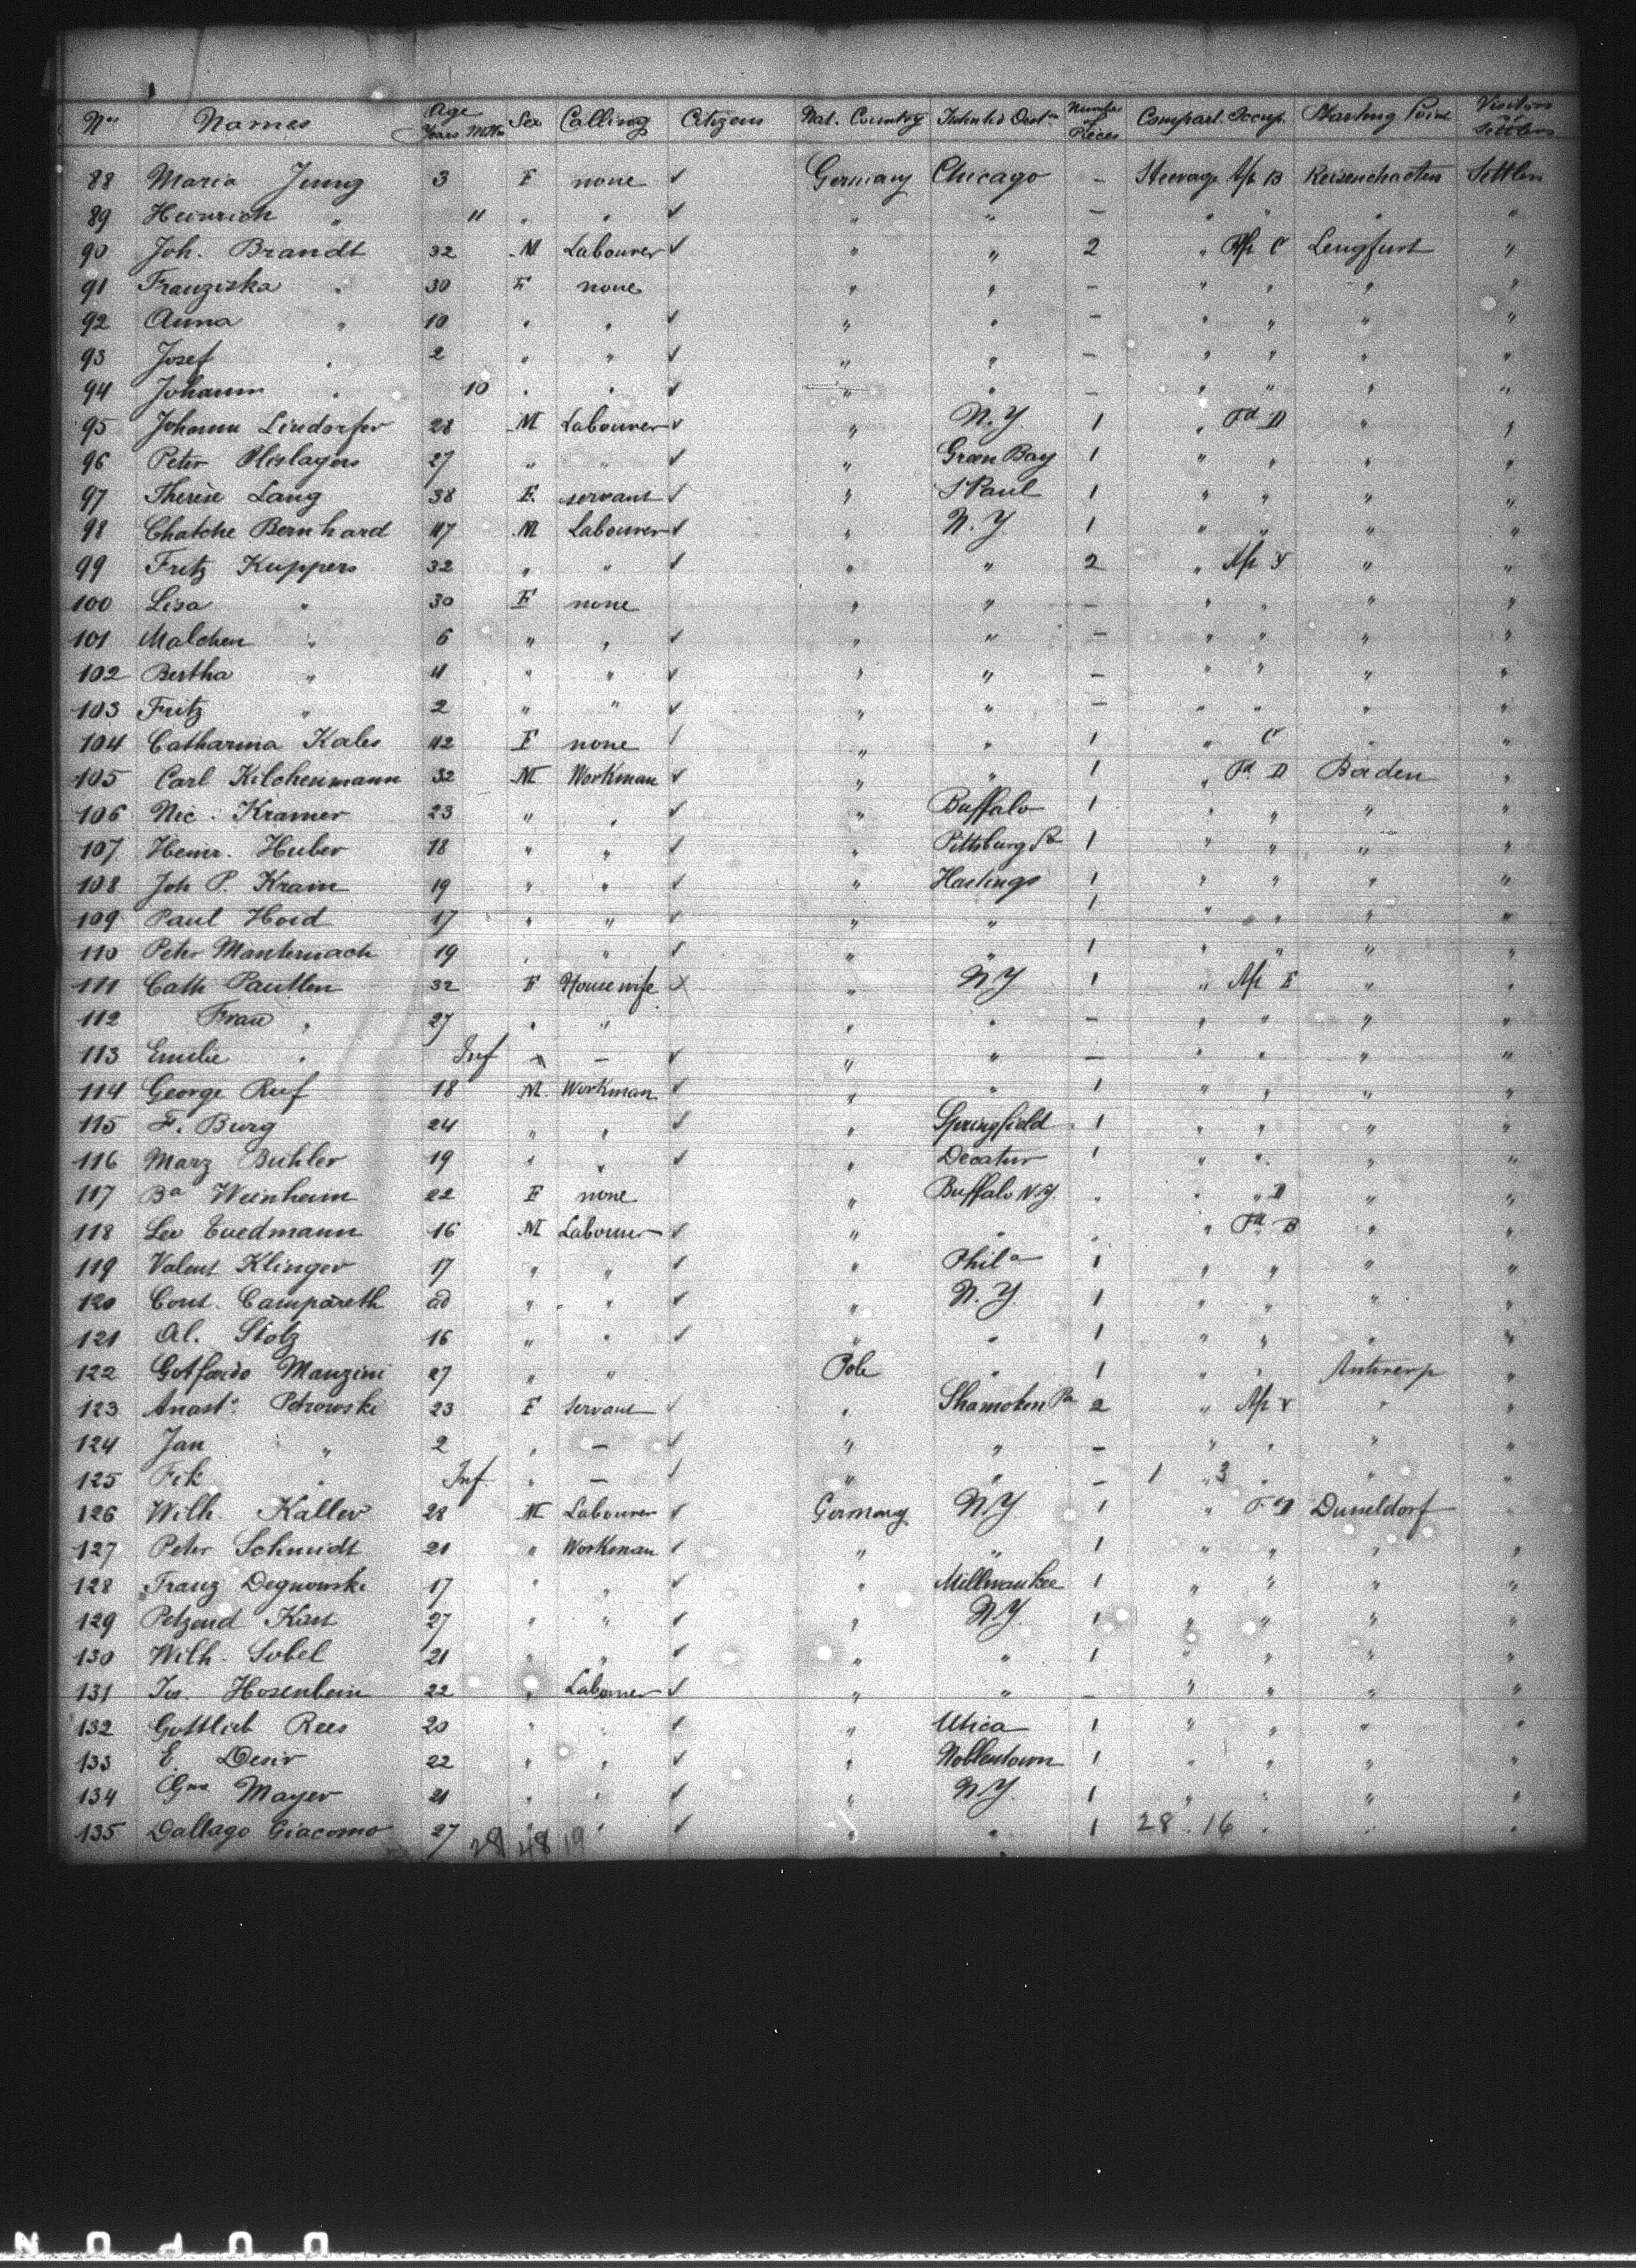 Nos Names Age Years Mths Sex Calling Citizens Nat. Country Intended Destn Number of Pieces Compart. Occup. Starting Point Visitors or Settlers
88 Maria Jung 3 F none ✓ Germany Chicago - Steerage Aft B Settlers
89 Heinrich " 11 " " ✓ " " - " " " "
90 Joh. Brandt 32 M Labourer ✓ " " 2 " Aft C Lengfurt "
91 Franziska " 30 F none " " - " " " "
92 Anna " 10 " " ✓ " " - " " " "
93 Josef " 2 " " ✓ " " - " " " "
94 Johann " 10 " " ✓ " " - " " " "
95 Johann Lindorfer 28 M Labourer ✓ " N.Y. 1 " Fd D " "
96 Peter 27 " " ✓ " Green Bay 1 " " " "
97 Therese Lang 38 F. servant ✓ " S Paul 1 " " " "
98 Chatche Bernhard 47 M Labourer ✓ " N.Y. 1 " " " "
99 Fritz Kuppers 32 " " ✓ " " 2 " Aft " "
100 Lisa " 30 F none " " - " " " "
101 Malchen " 6 " " ✓ " " - " " " "
102 Bertha " 4 " " ✓ " " - " " " "
103 Fritz " 2 " " ✓ " " - " " " "
104 Catharina Kales 42 F none / " " 1 " C " "
105 Carl Kilchenmann 32 M Workman ✓ " " 1 " Fd D Baden "
106 Nic. Kramer 23 " " ✓ " Buffalo 1 " " " "
107 Heinr. Huber 18 " " ✓ " Pittsburg Pa 1 " " " "
108 Joh P. Krain 19 " " ✓ " Hastings 1 " " " "
109 Paul Hoid 17 " " ✓ " " 1 " " " "
110 Peter Manternach 19 " " ✓ " " 1 " " " "
111 Cath Pautlen 32 F House wife X " N.Y 1 " Aft E " "
112 Frau " 27 " " " " - " " " "
113 Emilie " Inf " - ✓ " " - " " " "
114 George Ruf 18 M. Workman ✓ " " 1 " " " "
115 F. Burg 24 " " ✓ " Springfield 1 " " " "
116 Marz Buhler 19 " " ✓ " Decatur 1 " " " "
117 Ba Weinheim 22 F none " Buffalo N.Y. " " " D " "
118 Leo 16 M Labourer ✓ " " " " Fd B " "
119 Valent Klinger 17 " " ✓ " Phila 1 " " " "
120 Const. Campareth ad " " ✓ " N.Y. 1 " " " "
121 Al. Stolz 16 " " ✓ " " 1 " " " "
122 Gotfardo Manzini 27 " " Pole " 1 " " Antwerp "
123 Anast. Petrowski 23 F Servant ✓ " Shamokin Pa 2 " Aft " "
124 Jan " 2 " - ✓ " " - " " " "
125 Fik " Inf. " - ✓ " " - 1 " 3 " " "
126 Wilh. Kaller 28 M Labourer ✓ Germany N.Y 1 " Fd D Dusseldorf "
127 Peter Schmidt 21 " Workman ✓ " " 1 " " " "
128 Franz Degnowski 17 " " ✓ " Millwaukee 1 " " " "
129 Petzend 27 " " ✓ " N.Y. 1 " " " "
130 Wilh. Sobel 21 " " ✓ " " 1 " " " "
131 Jos. Hosenbein 22 " Labourer ✓ " " - " " " "
132 Gottlieb Rees 20 " " ✓ " Utica 1 " " " "
133 E. Desir 22 " " ✓ " Noblestown 1 " " " "
134 Mayer 21 " " ✓ " N.Y. 1 " " " "
135 Dallago Giacomo 27 " " ✓ " " 1 28 . 16 " " "
28 48 19